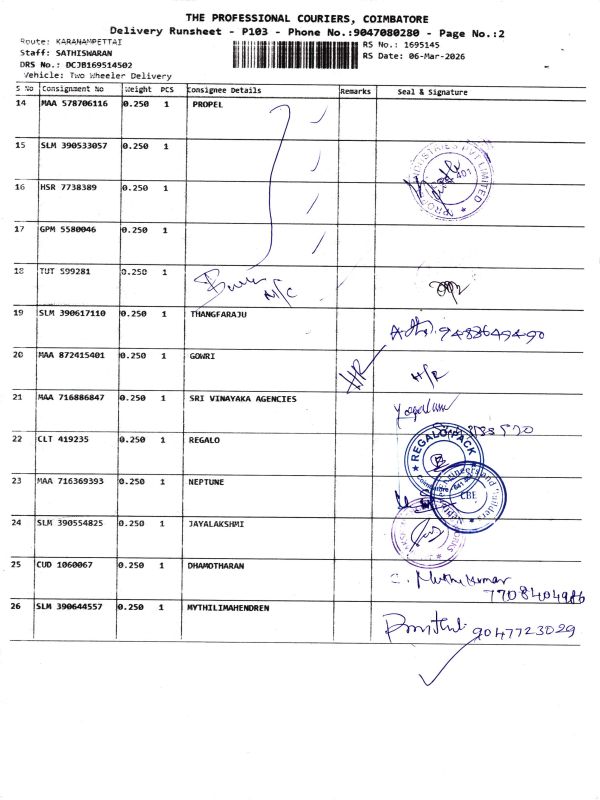 THE PROFESSIONAL COURIERS, COIMBATORE
Delivery Runsheet - P103 - Phone No.:9047080280 - Page No.:2
Route: KARANAMPETTAI RS No.: 1695145
Staff: SATHISWARAN RS Date: 06-Mar-2026
DRS No.: DCJB169514502
Vehicle: Two Wheeler Delivery
S No Consignment No Weight PCS Consignee Details Remarks Seal & Signature
14 MAA 578706116 0.250 1 PROPEL
15 SLM 390533057 0.250 1
INDUSTRIES PVT LIMITED
401
16 HSR 7738389 0.250 1
17 GPM 5580046 0.250 1
18 TUT 599281 0.250 1
19 SLM 390617110 0.250 1 THANGFARAJU
9482649490
20 MAA 872415401 0.250 1 GOWRI HR H/R
21 MAA 716886847 0.250 1 SRI VINAYAKA AGENCIES
22 CLT 419235 0.250 1 REGALO
REGALO PACK
23 MAA 716369393 0.250 1 NEPTUNE
CBE
24 SLM 390554825 0.250 1 JAYALAKSHMI
25 CUD 1060067 0.250 1 DHAMOTHARAN
Muthukumar
7708404986
26 SLM 390644557 0.250 1 MYTHILIMAHENDREN
9047723029